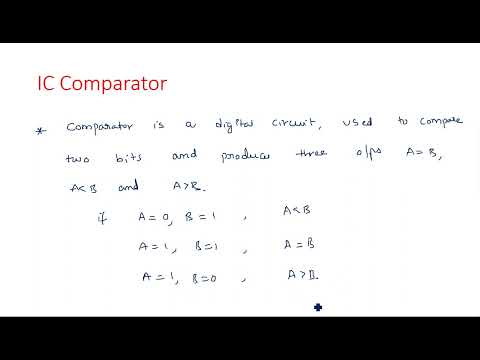 IC Comparator
* Comparator is a digital circuit, used to compare
two bits and produce three o/ps A = B,
A<B and A>B.
if A = 0, B = 1 , A<B
A = 1, B = 1 , A = B
A = 1, B = 0 , A>B.